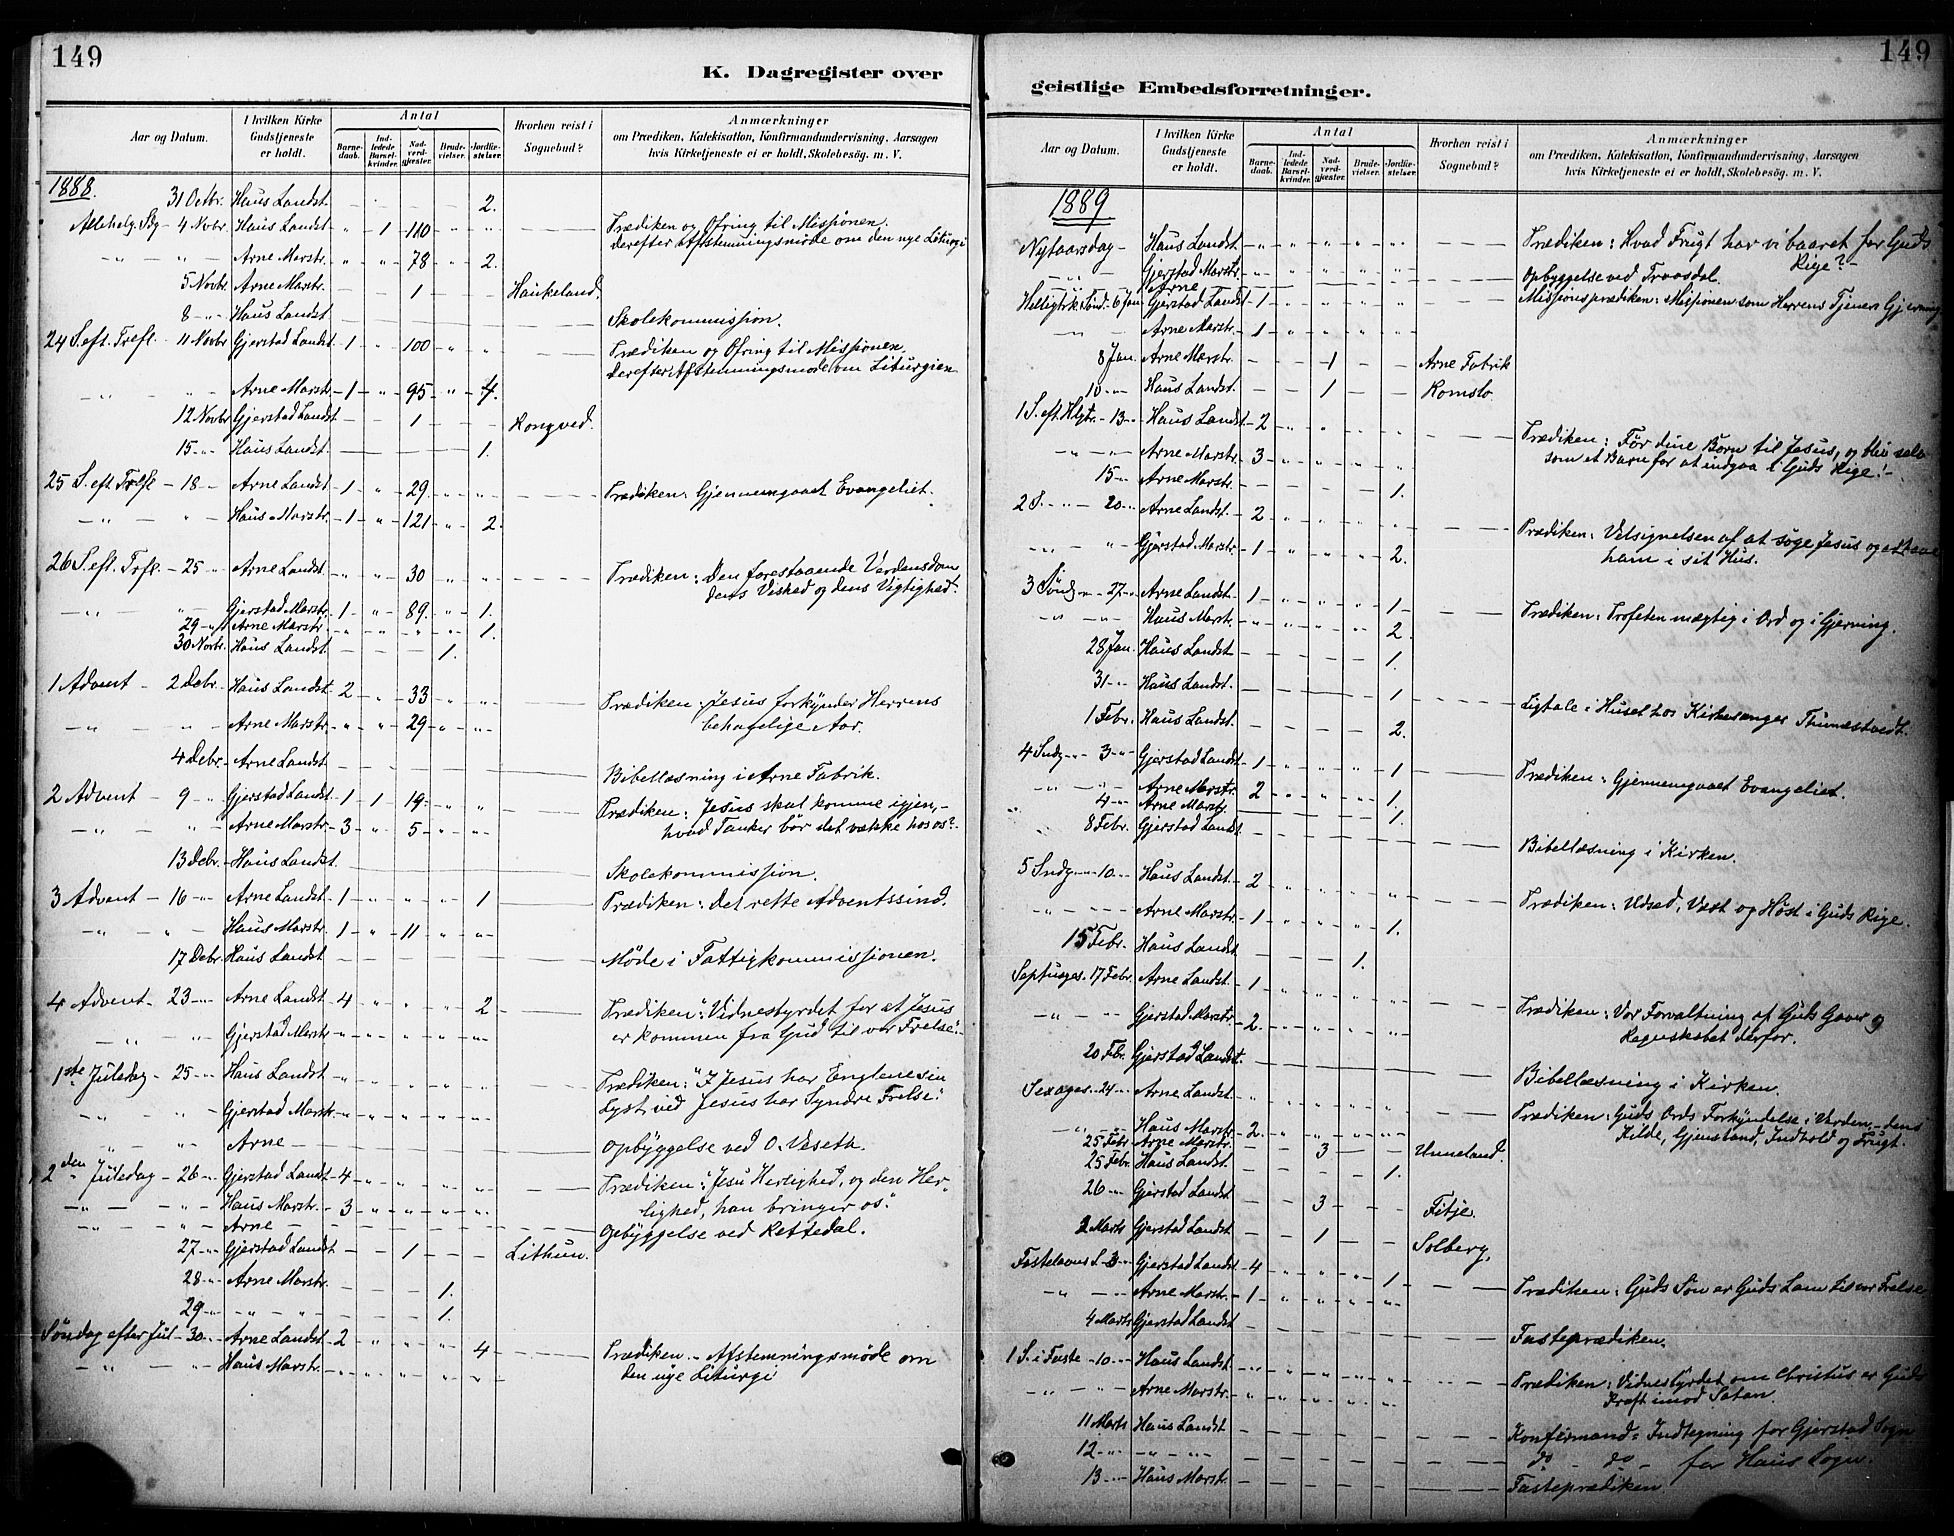 149
K. Dagregister over
Aar og Datum.
I hvilken Kirke Gudstjeneste er holdt.
Antal
Barnedaab.
Indledede Barselkvinder.
Nadverdgjæster.
Brudevielser.
Jordfæstelser.
Hvorhen reist i Sognebud?
Anmærkninger
om Prædiken, Katekisation, Konfirmandundervisning, Aarsagen
hvis Kirketjeneste ei er holdt, Skolebesøg. m. V.
1888.
31 Octbr. Haus Landst. — — — — 2.
Allehelg. Sdg — 4 Novbr. Haus Landst " 1 110 " " — Prædiken og Ofring til Missionen.
derefter Afstemningsmøde om den nye Liturgi
— " — " — Arne Marstr. " " 78 " 2.
5 Novbr Arne Marstr. — — 1 — — Haukeland.
8 — " — Haus Landst — — — — — — Skolekommission.
24 S. eft. Trefl. — 11 Novbr Gjerstad Landst 1 " 100 " " — Prædiken og Ofring til Missionen.
derefter Afstemningsmøde om Liturgien
" " Arne Marstr 1 " 95 " 4.
12 Novbr Gjerstad Landst — — 1 — — Rongved.
15 — " — Haus Landst. — — — — 1.
25 S. eft Trefl — 18 — " Arne Landst 1 " 29 " " — Prædiken: Gjennemgaaet Evangeliet.
— " — " — Haus Marstr. 1 " 121 " 2.
26 S. eft. Trfl. — 25 — " Arne Landst. " " 30 " " — Prædiken: Den forestaaende Verdensdom
dens Vished og dens Vigtighed.
— " — " — Gjerstad Marstr. 1 " 89. " 1.
29 — " Arne Marstr. " " " " 1.
30 Novbr. Haus Landst. 1.
1 Advent — 2 Debr. Haus Landst. 2 " 33 " " — Prædiken: Jesus forkynder Herrens
behagelige Aar.
— " — " — Arne Marstr. " " 29 " "
4 Debr. Arne Landst. — — — — — — Bibellæsning i Arne Fabrik.
2 Advent — 9 — " Gjerstad Landst. 1 1 19 " " — Prædiken: Jesus skal komme igjen, —
hvad Tanker bør det vække hos os?
— " — " — Arne Marstr. 3 " 5 " "
13 Debr. Haus Landst. — — — — — — Skolekommission.
3 Advent — 16 — " Arne Landst. 1 " " " 1 — Prædiken: Det rette Adventssind.
— " — " — Haus Marstr. 1 " 11 " "
17 Debr. Haus Landst — — — — — — Møde i Fattigkommissionen.
4 Advent — 23 — " Arne Landst. 4 " " " 2 — Prædiken: "Vidnesbyrdet for at Jesus
er kommen fra Gud til vor Frelse."
— " — " — Gjerstad Marstr " " " " "
1ste Juledag — 25 — " Haus Landst. " " " " " — Prædiken: "I Jesus har Englene sin
Lyst, ved Jesus har Syndre Frelse."
" " Gjerstad Marstr " " " " "
" " Arne — — — — — — — Opbyggelse ved O. Vaseth.
2den Juledag — 26 — " Gjerstad Landst. 4 " " " " — Prædiken: "Jesu Herlighed, og den Her-
lighed, han bringer os."
— " — " — Haus Marstr. 3 " " " "
— " — " — Arne — — — — — — — Opbyggelse ved Rettedal.
27 — " Gjerstad Landst — — 1 — — Lithun.
28 — " Arne Marstr. — — — 1.
29 — " — " — " — — — — 1.
Søndag efter Jul — 30 — " Arne Landst. 2 " " " 4 — Prædiken. — Afstemningsmøde om
den nye Liturgi
— " — " — Haus Marstr. " " " " "
149
geistlige Embedsforretninger.
Aar og Datum.
I hvilken Kirke Gudstjeneste er holdt.
Antal
Barnedaab.
Indledede Barselkvinder.
Nadverdgjæster.
Brudevielser.
Jordfæstelser.
Hvorhen reist i Sognebud?
Anmærkninger
om Prædiken, Katekisation, Konfirmandundervisning, Aarsagen
hvis Kirketjeneste ei er holdt, Skolebesøg. m. V.
1889
Nytaarsdag — Haus Landst. " " " " " — Prædiken: Hvad Frugt har vi baaret for Guds
Rige? —
— " — Gjerstad Marstr. " " " " "
— " — Arne — — — — — — Opbyggelse ved Traasdal.
Helligtr.k. Sønd. 6 Jan. Gjerstad Landst 1 " " " " — Missionsprædiken: Missionen som Herrens Tjeners Gjerning.
— " — Arne Marstr. 1 " " " "
8 Jan. Arne Marstr. — — 1 — — Arne Fabrik
10 — " Haus Landst. — — 1 — — Romslo.
1 S. eft. Hlgtr. — 13 — " Haus Landst 2 " " " " — Prædiken: Før dine Børn til Jesus, og bliv selv
som et Barn for at indgaa i Guds Rige! —
— " — " — Arne Marstr. 3 " " " "
15 — " Arne Marstr. — — — — 1.
2 S. — " — 20 — " Arne Landst. 2 " " " " — Prædiken: Velsignelsen af at søge Jesus og at have
ham i sit Hus.
— " — " Gjerstad Marstr. 1 " " " 2.
3 Søndg — " — 27 — " Arne Landst. 1 " " " 1 — Prædiken: Profeten mægtig i Ord og i Gjerning.
— " — " — Haus Marst. " " " " 2.
28 Jan. Haus Landst — — — — 1.
31 — " Haus Landst. — — — — 1 — Ligtale i Huset hos Kirkesanger Thunestvedt.
1 Febr. Haus Landst. — — — — 2.
4 Sndg — " — 3 — " Gjerstad Landst. 1 " " " 1 — Prædiken: Gjennemgaaet Evangeliet.
" " Arne Marstr. 2 " " " 1.
4 — " Arne Marstr. — — — — 1.
8 Febr. Gjerstad Landst. — — — — — — Bibellæsning i Kirken.
5 Sndg — " — 10 — " Haus Landst. 2 " " " " — Prædiken: Udsæd, Væxt og Høst i Guds Rige.
— " — " — Arne Marstr. 1 " " " 1.
15 Febr. Haus Landst — — — 1.
Septuages. 17 Febr. Arne Landst. 1 " " " " — Prædiken: Vor Forvaltning af Guds Gaver og
Regnskabet derfor.
— " — " — Gjerstad Marstr. 2. " " " "
20 Febr. Gjerstad Landst. — — — — — — Bibellæsning i Kirken.
Sexages. — 24 — " Arne Landst. " " " " " — Prædiken: Guds Ords Forkyndelse i Verden, — dens
Kilde, Gjenstand, Indhold og Frugt.
— " — " — Haus Marstr. 2. " " " "
25 Febr Arne Marstr. — — 3 — — Unneland.
25 Febr. Haus Landst. — — — — 1.
26 — " Gjerstad Landst — — 3 — — Fitje.
2 Marts Gjerstad Landst. — — 1 — — Solberg.
Fastelavns S. — 3 — " Gjerstad Landst. 4 " " " 1 — Prædiken: Guds Søn er Guds Lam til vor Frelse
— " — " — Arne Marstr. 1 " " " "
4 Marts Gjerstad Landst — — — — — — Fasteprædiken.
1 S. i Faste — 10 — " Haus Landst. " " " " " — Prædiken: Vidnesbyrdet om Christus er Guds
Kraft imod Satan.
— " — " — Arne Marstr. " " " " "
11 Marts Haus Landst — — — — — — Konfirmand-Indtegning for Gjerstad Sogn
12 — " — " — " — — — — — — do — do — for Haus Sogn.
13 — " Haus Marstr. — — — — — — Fasteprædiken.